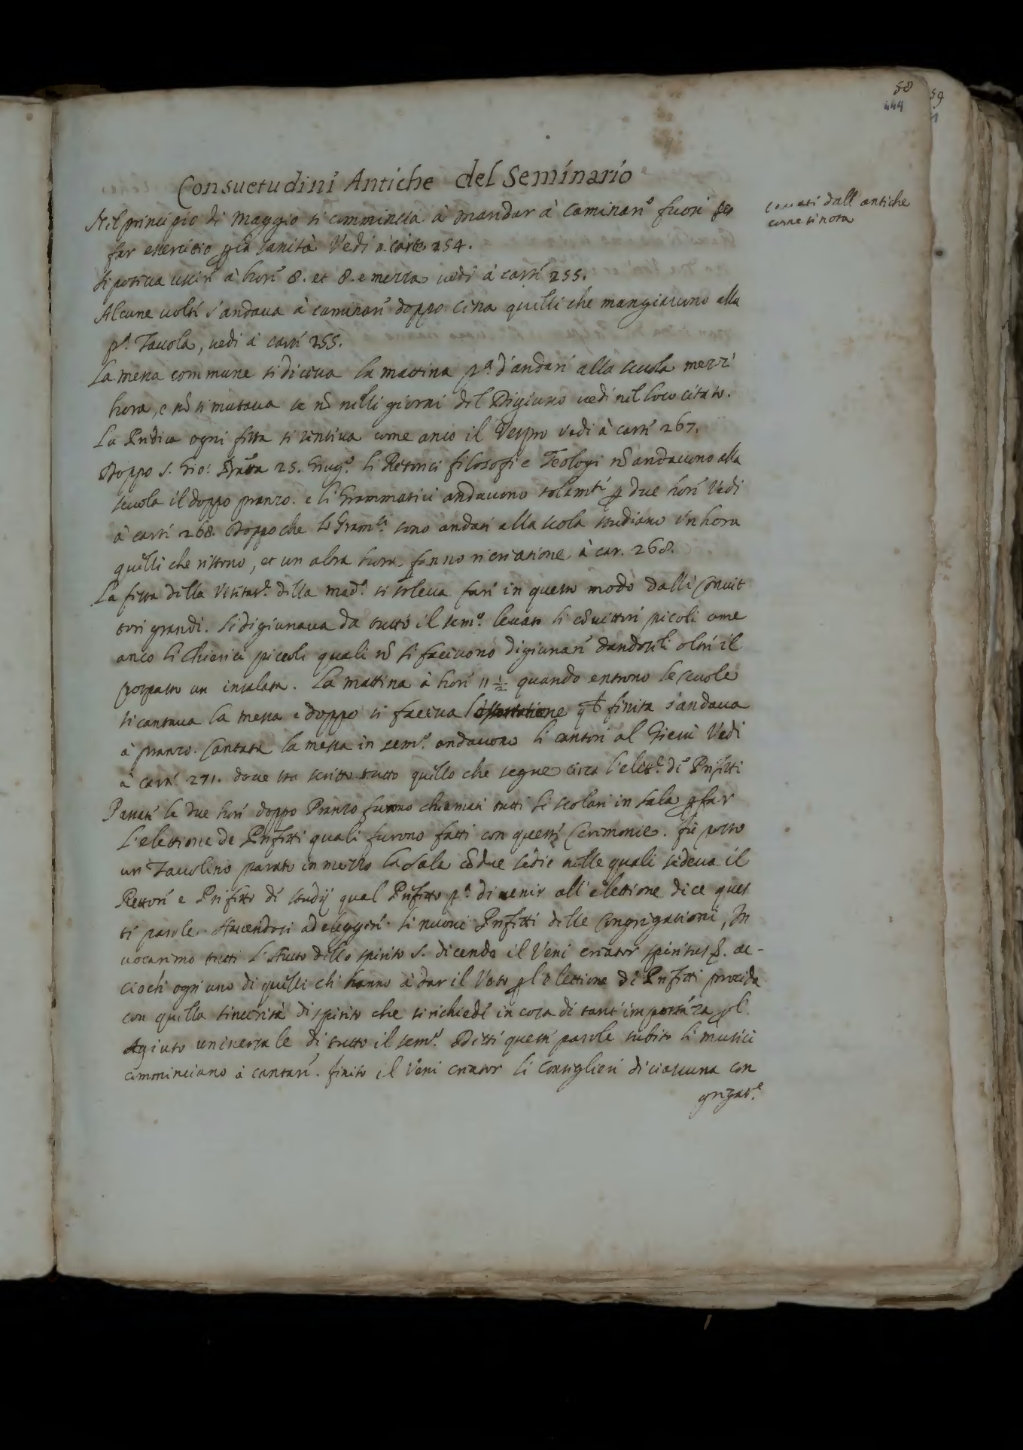 58
59
449
Consuetudini Antiche del Seminario
cavati dall antiche
come si nota
Nel principio di Maggio si comincia à mandar à Caminar.e fuori per
far esercitio la sanità Vedi à carte 254.
si poteva uscir à hore 8. et 8. e mezza vedi à carte 255.
Alcune volte s'andava à caminare doppo Cena quelli che mangiavano alla
p.a Tavola, vedi à carte 255.
La messa commune si diceva la mattina p.a d'andare alla scuola mezz'
hora, e nõ si mutava se nõ nelli giorni del Digiuno vedi nel loco citato.
La Predica ogni festa si sentiva come anco il Vespro vedi à carte 267.
Doppo S. Gio: 25. Giug.o li Retorici filosofi e Teologi nõ andavono alla
scuola il doppo pranzo. e li Grammatici andavono due hore Vedi
à carte 268. Doppo che li Gram.ci sono andati alla scola studiano un hora
quelli che restono, et un altra hora fanno ricreatione à car. 268.
La festa della Visitat.e della Mad.a si soleva fare in questo modo dalli Convit
tori grandi. si digiunava da tutto il sem.o levati li cõvittori picoli come
anco li Chierici piccoli quali nõ si facevono digiunare oltre il
un insalata. La mattina à hore 11 1/2 quando entrono le scuole
si cantava la messa e doppo si faceva finita s'andava
à pranzo. Cantata la messa in sem.o andavono li cantori al Giesù Vedi
à carte 271. dove sta scritto tutto quello che segue circa l'elet.e de Prefetti
Passate le due hore doppo Pranzo furono chiamati tutti li scolari in sala far
L'elettione de Prefetti quali furono fatti con queste Cerimonie. fù posto
un Tavolino parato in mezzo la sala cõ due sedie nelle quali sedeva il
Rettore e Prefetto di studij qual Prefetto p.a di venir all'elettione dice ques
te parole. Havendosi ad eleggere li nuovi Prefetti delle Congregationi, In
vocaremo tutti l'Aiuto dello spirito S. dicendo il Veni creator spiritus ac-
ciochè ogni uno di quelli ch'hanno à dar il Voto l'elettione de Prefetti proceda
con quella sincerità di spirito che si richiede in cosa di tant'importãza
Agiuto universale di tutto il sem.o Dette queste parole subito li musici
cominciano à cantare. finito il Veni creator li Consiglieri di ciascuna con
gregat.e